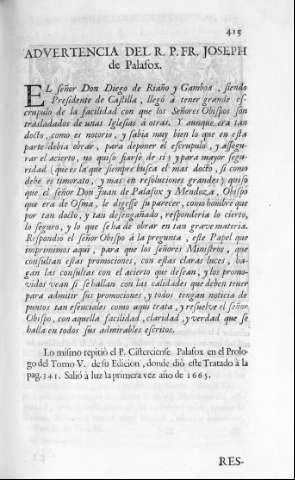 415
ADVERTENCIA DEL R. P. FR. JOSEPH
de Palafox.
EL señor Don Diego de Riaño y Gamboa, siendo
Presidente de Castilla, llegó à tener grande es-
crupulo de la facilidad con que los Señores Obispos son
trasladados de unas Iglesias à otras. Y aunque era tan
docto, como es notorio, y sabia muy bien lo que en esta
parte debia obrar, para deponer el escrupulo, y assegu-
rar el acierto, no quiso fiarse de sì; y para mayor segu-
ridad (que es la que siempre busca el mas docto, si como
debe es timorato, y mas en resoluciones grandes) quiso
que el señor Don Juan de Palafox y Mendoza, Obispo
que era de Osma, le digesse su parecer, como hombre que
por tan docto, y tan desengañado, responderia lo cierto,
lo seguro, y lo que se ha de obrar en tan grave materia.
Respondiò el señor Obispo à la pregunta, este Papel que
imprimimos aqui, para que los señores Ministros, que
consultan estas promociones, con estas claras luces, ha-
gan las consultas con el acierto que desean, y los promo-
vidos vean si se hallan con las calidades que deben tener
para admitir sus promociones, y todos tengan noticia de
puntos tan esenciales como aqui trata, y resuelve el señor
Obispo, con aquella facilidad, claridad, y verdad que se
halla en todos sus admirables escritos.
Lo mismo repitiò el P. Cisterciense Palafox en el Prolo-
go del Tomo V. de su Edicion, donde diò este Tratado à la
pag. 341. Saliò à luz la primera vez año de 1665.
RES-